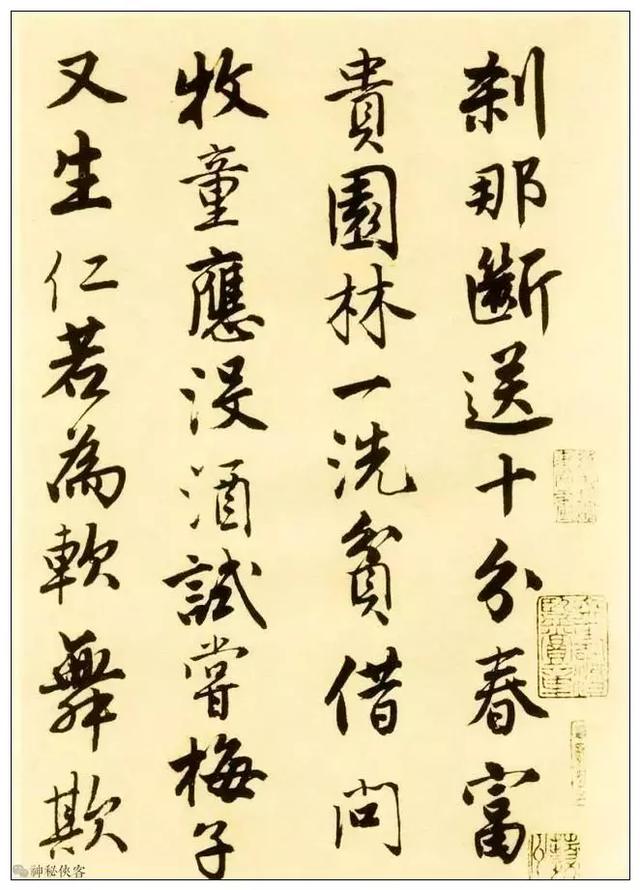 刹那斷送十分春富
貴園林一洗貧借問
牧童應沒酒試嘗梅子
又生仁若為軟舞欺
神秘侠客